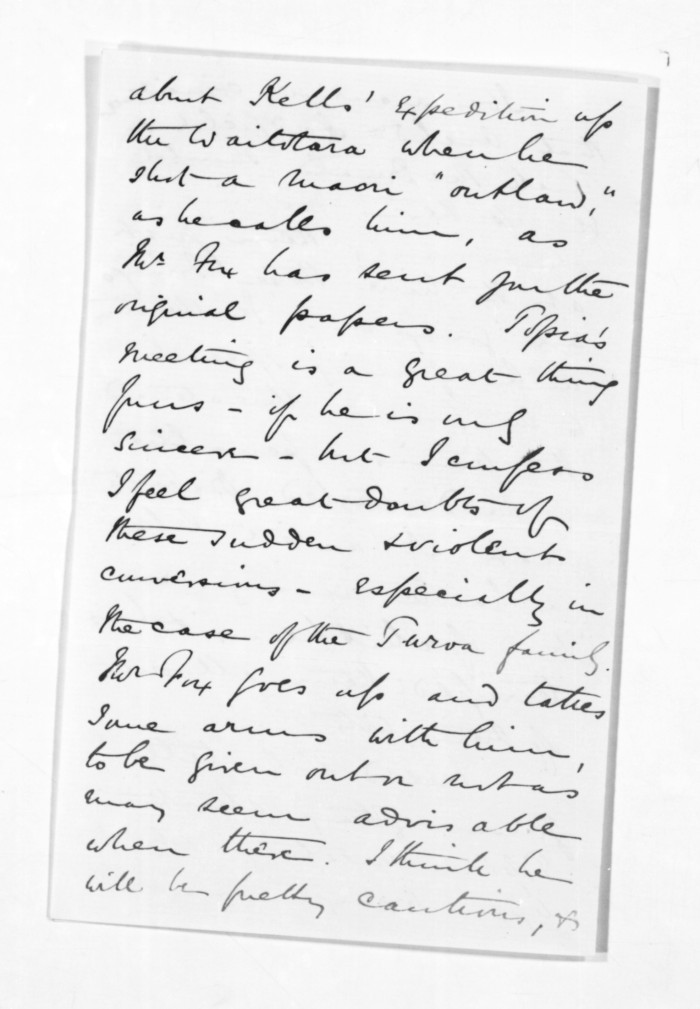 about Kells' expedition up
the Waitotara when he
shot a maori "outlaw,"
as he calls him, as
Mr. Fox has sent for the
original papers. Topia's
meeting is a great thing
for us - if he is only
sincere - but I confess
I feel great doubts of
these sudden & violent
conversions - especially in
the case of the Turoa family.
Mr Fox goes up and takes
some arms with him,
to be given out or not as
may seem advisable
when there. I think he
will be pretty cautious, &